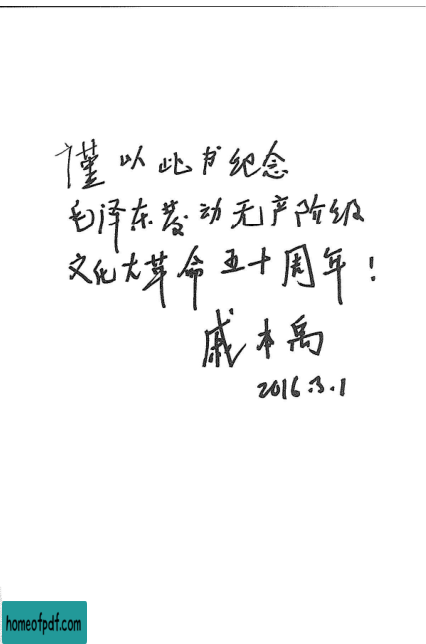 谨以此书纪念
毛泽东发动无产阶级
文化大革命五十周年！
戚本禹
2016.3.1
homeofpdf.com